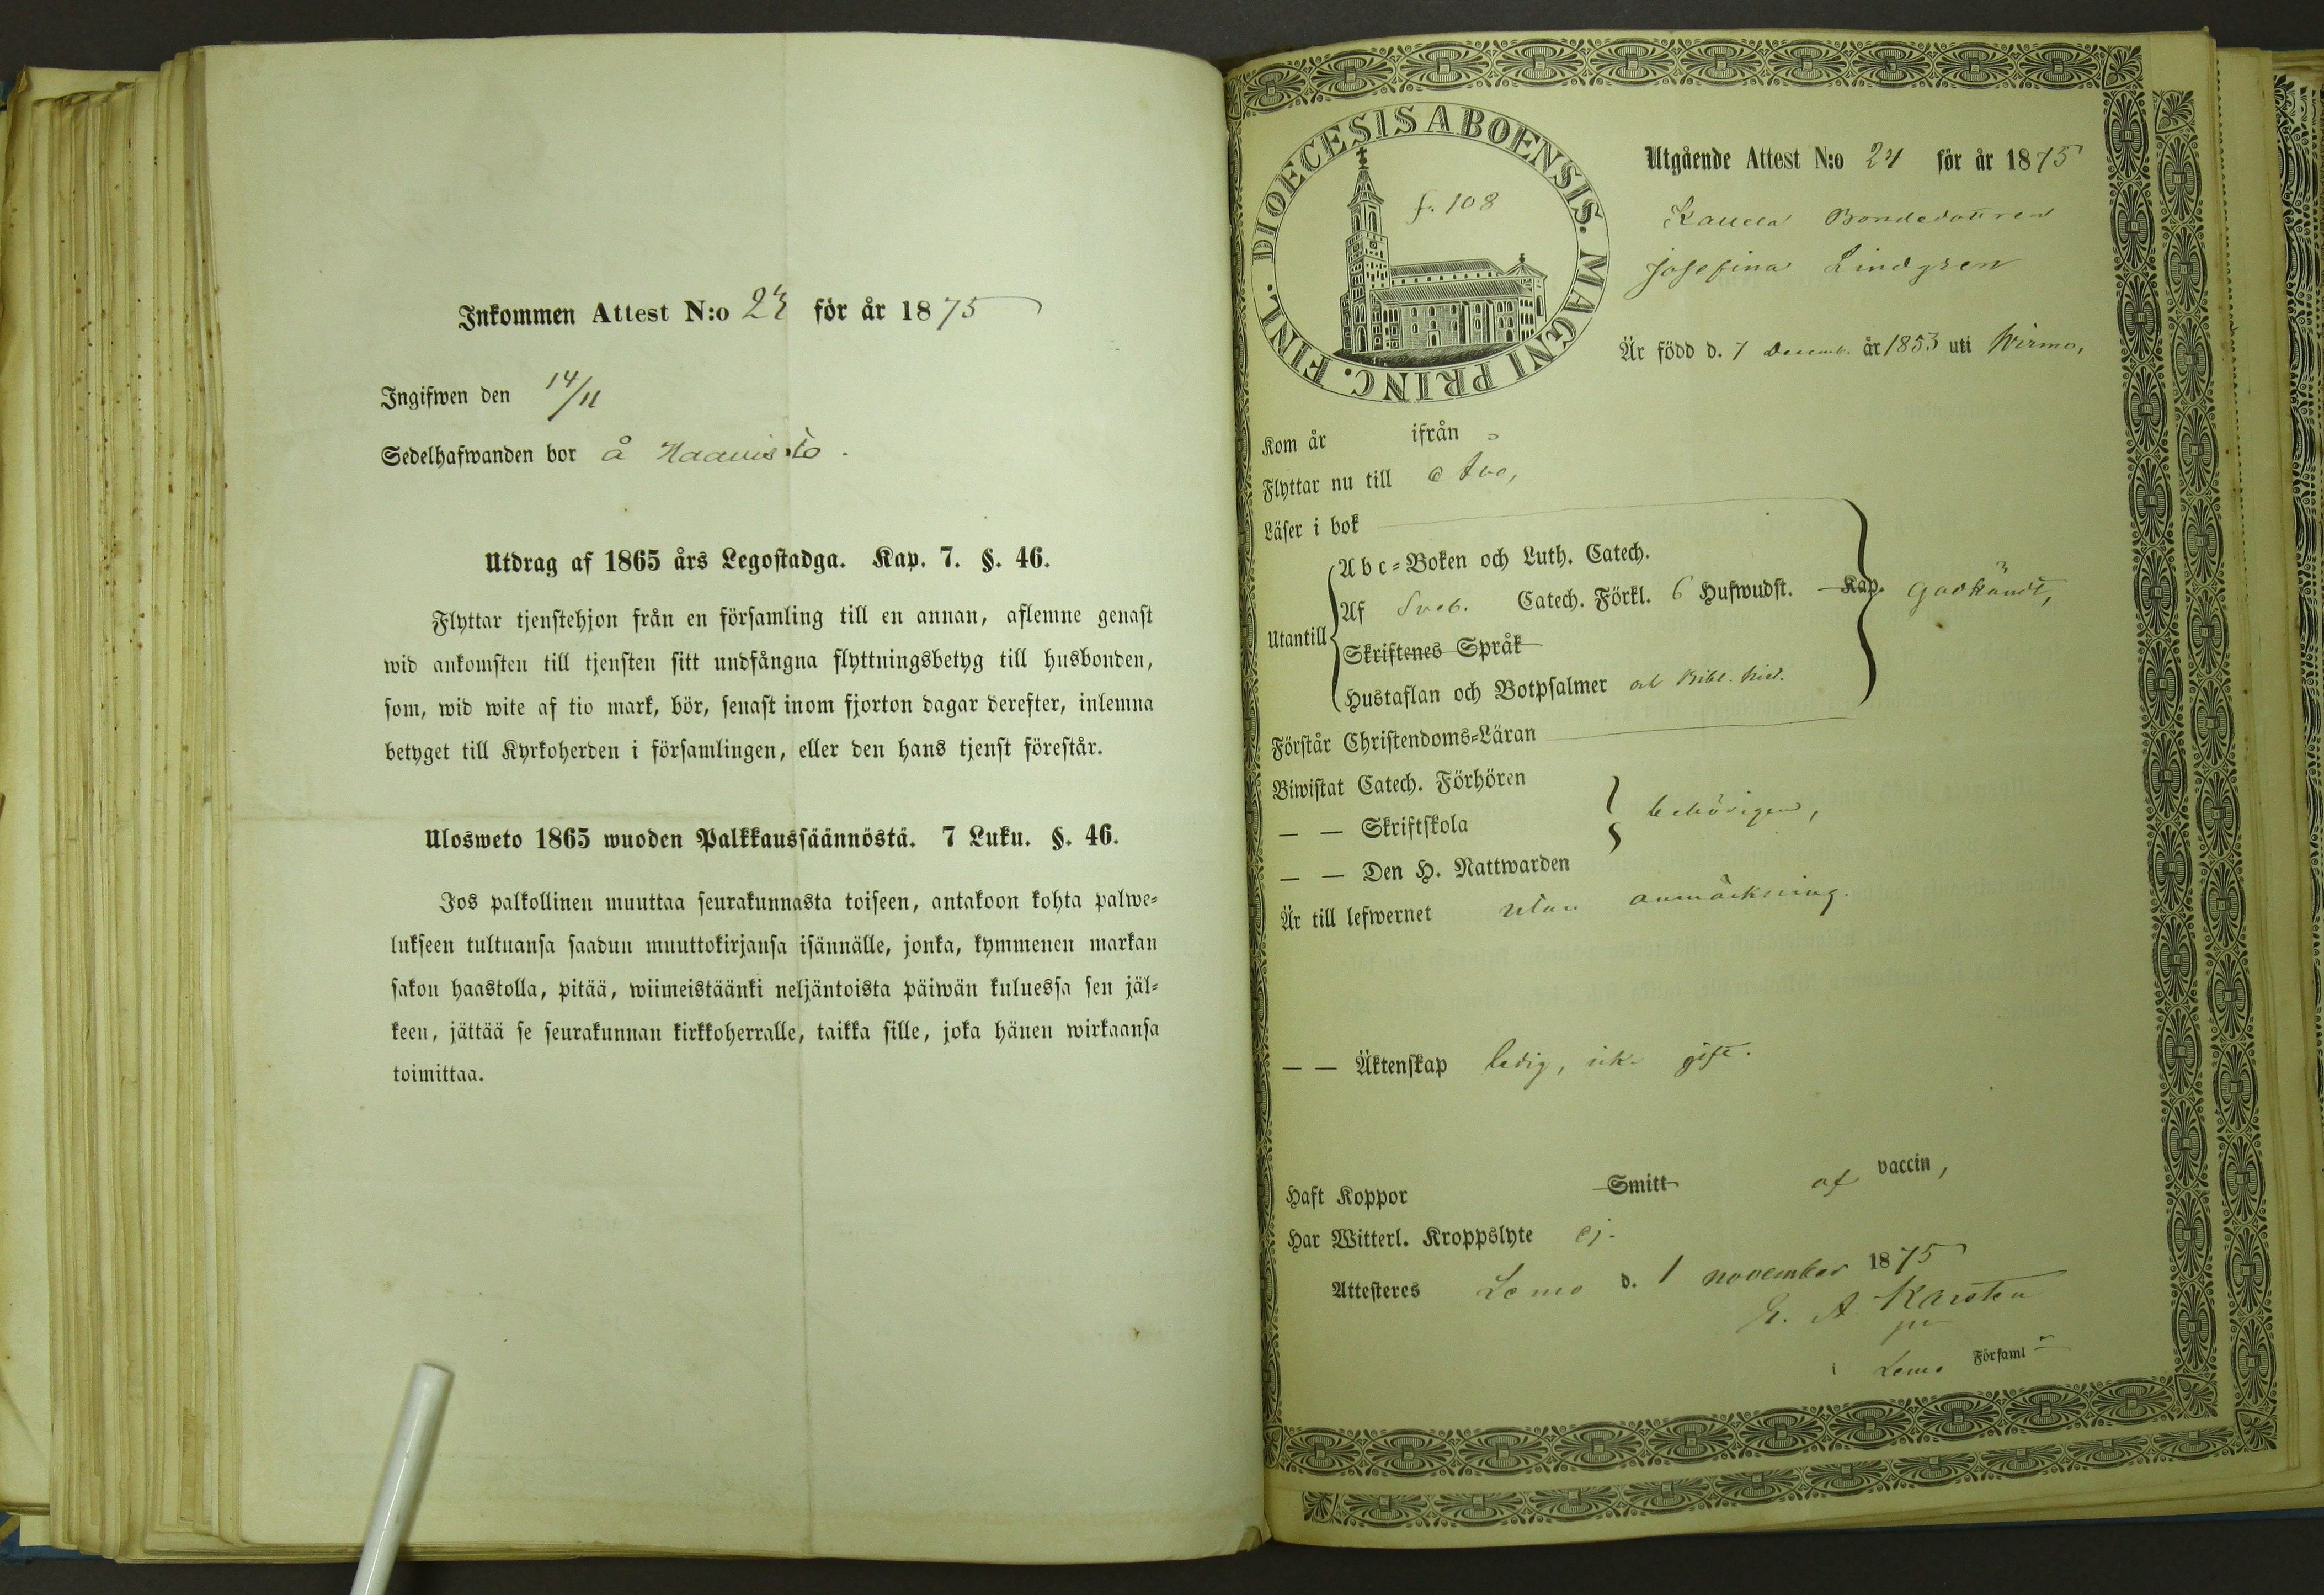 Inkommen Attest N:o 23 för år 1875
Ingifwen den 14/11
Sedelhafwanden bor å Haavisto.
Utdrag af 1865 års Legostadga. Kap. 7. §. 46.
Flyttar tjenstehjon från en församling till en annan, aflemne genast
wid ankomsten till tjensten sitt undfångna flyttningsbetyg till husbonden,
som, wid wite af tio mark, bör, senast inom fjorton dagar derefter, inlemna
betyget till Kyrkoherden i församlingen, eller den hans tjenst förestår.
Ulosweto 1865 wuoden Palkkaussäännöstä. 7 Luku. §. 46.
Jos palkollinen muuttaa seurakunnasta toiseen, antakoon kohta palwe=
lukseen tultuansa saadun muuttokirjansa isännälle, jonka, kymmenen markan
sakon haastolla, pitää, wiimeistäänki neljäntoista päiwän kuluessa sen jäl=
keen, jättää se seurakunnan kirkkoherralle, taikka sille, joka hänen wirkaansa
toimittaa.
DIOECESIS ABOENSIS. MAGNI PRINC. FINL.
f. 108
Utgående Attest N:o 24 för år 1875
Bondedottren
Josefina Lindgren
Är född d. 7 Decemb. år 1853 uti Wirmo,
Kom år ifrån
Flyttar nu till
Läser i bok
Utantill
Abc=Boken och Luth. Catech.
Af Sveb. Catech. Förkl. 6 Hufwudst. Kap. godkändt,
Skriftenes Språk
Hustaflan och Botpsalmer och Bibl. hist.
Förstår Christendoms=Läran
Biwistat Catech. Förhören
— — Skriftskola behörigen,
— — Den H. Nattwarden
Är till lefwernet utan anmärkning.
— — Äktenskap ledig, ick. gift.
Haft Koppor Smitt af vaccin,
Har Witterl. Kroppslyte ej.
Attesteres Lemo d. 1 november 1875
E. A. Karsten
i Lemo Församl